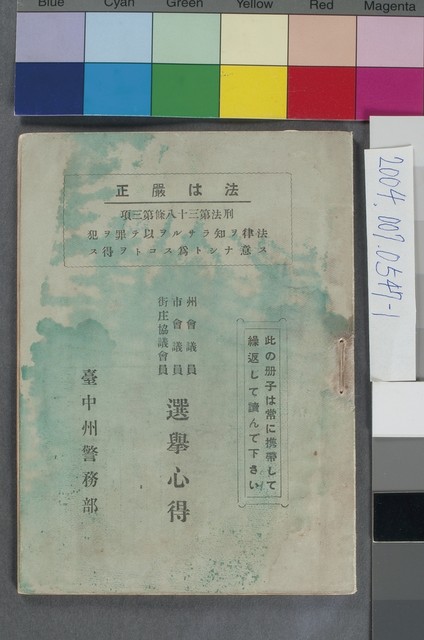 Blue Cyan Green Yellow Red Magenta
法は嚴正
刑法第三十八條第三項
法律ヲ知ラサルヲ以テ罪ヲ犯
ス意ナシト爲スコトヲ得ス
此の册子は常に携帶して
繰返して讀んで下さい
州會議員
市會議員
街庄協議會員
選擧心得
臺中州警務部
2004.007.0547-1